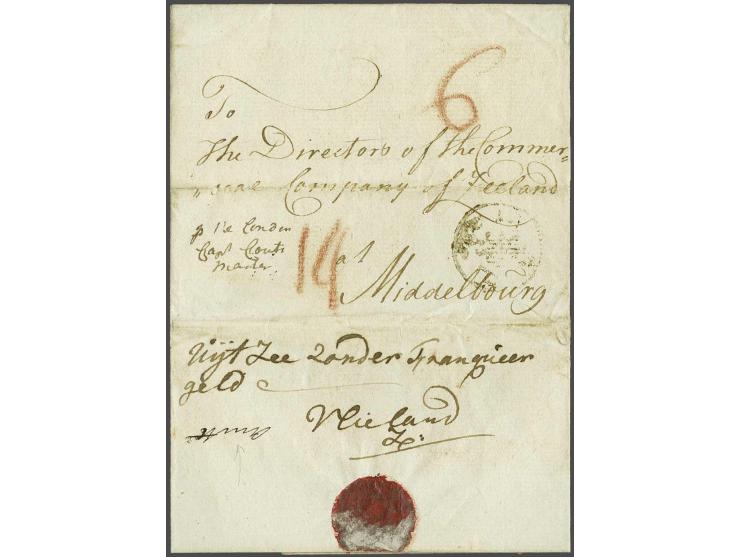 6
To
The Directors of the Commer=
"ciale Company of Zeeland
London
Capt
Master
14 at
Middelbourg
Uijt Zee Zonder Franqueer
geld
Vlieland